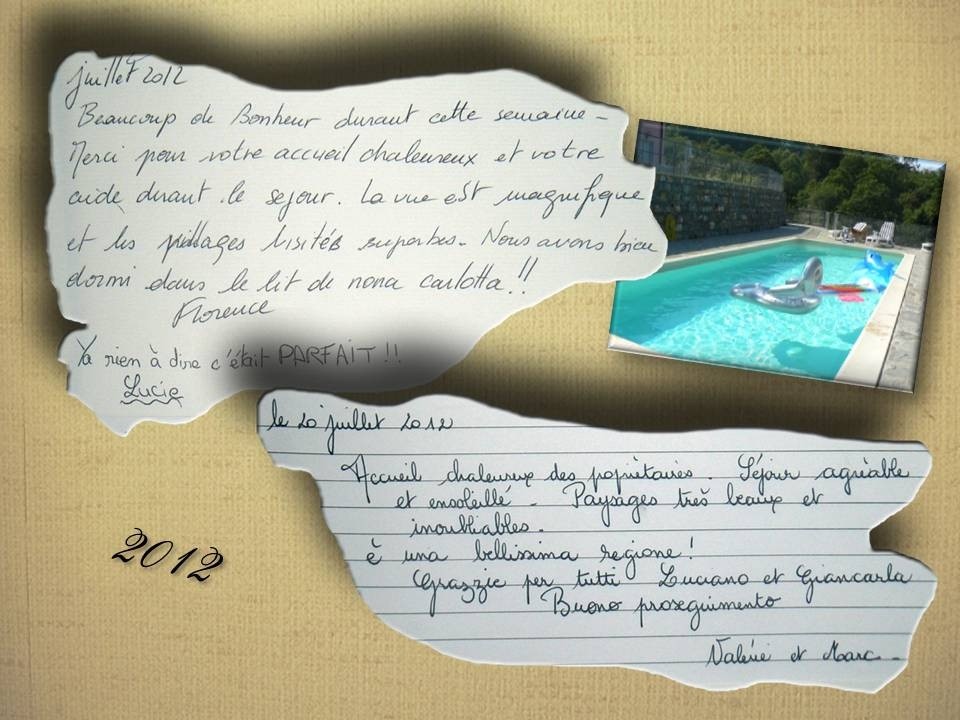 juillet 2012
Beaucoup de Bonheur durant cette semaine -
Merci pour votre accueil chaleureux et votre
aide durant le sejour. La vue est magnifique
et les villages visités superbes - Nous avons bien
dormi dans le lit de nona carlotta !!
Florence
Ya rien à dire c'était PARFAIT !!
Lucie
le 20 juillet 2012
Accueil chaleureux des popriètaires. Séjour agréable
et ensoleillé - Paysages très beaux et
inoubliables.
è una bellissima regione !
Grazzie per tutti Luciano et Giancarla
Buono proseguimento
Valérie et Marc -
2012